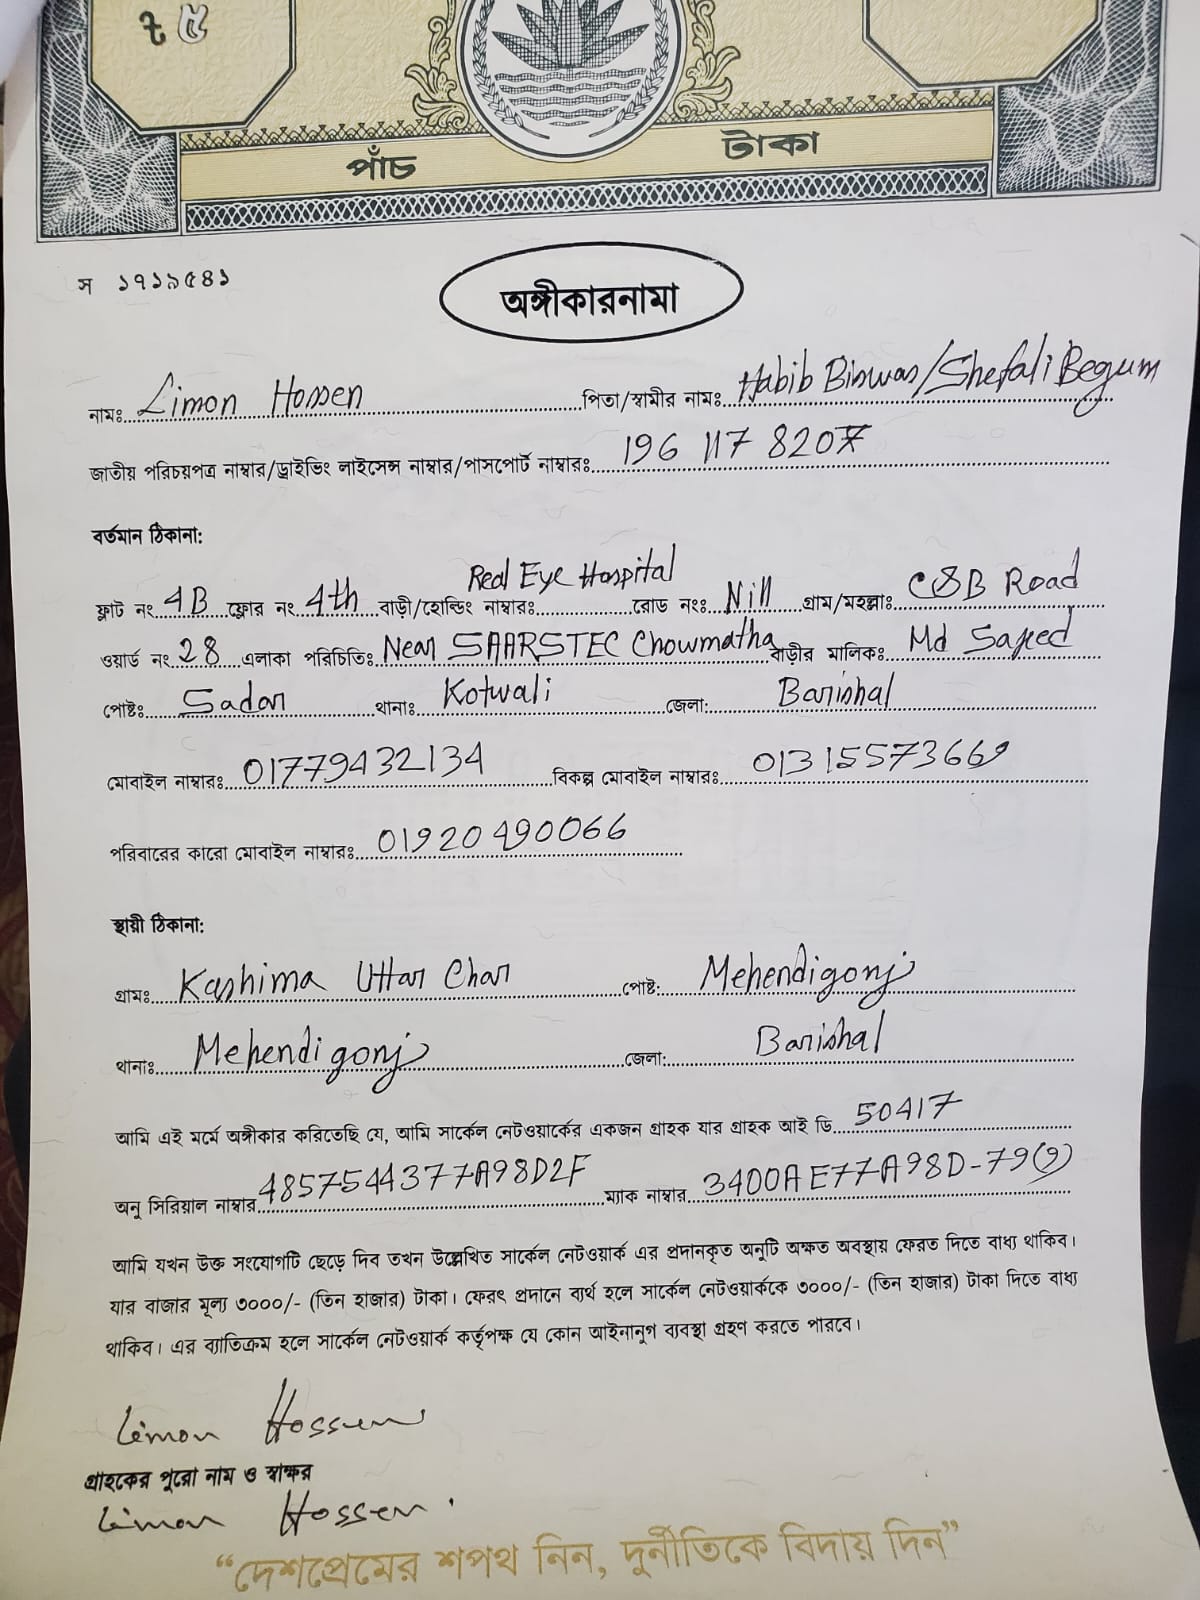 ৳ ৫
পাঁচ টাকা
স ১৭১৯৫৪১
অঙ্গীকারনামা
নামঃ Limon Hossen পিতা/স্বামীর নামঃ Habib Biswas/Shefali Begum
জাতীয় পরিচয়পত্র নাম্বার/ড্রাইভিং লাইসেন্স নাম্বার/পাসপোর্ট নাম্বারঃ 196 117 8207
বর্তমান ঠিকানা:
ফ্লাট নং 4B ফ্লোর নং 4th বাড়ী/হোল্ডিং নাম্বারঃ Real Eye Hospital রোড নংঃ Nill গ্রাম/মহল্লাঃ C&B Road
ওয়ার্ড নং 28 এলাকা পরিচিতিঃ Near SAARSTEC Chowmatha বাড়ীর মালিকঃ Md Sajeed
পোষ্টঃ Sadar থানাঃ Kotwali জেলা: Barishal
মোবাইল নাম্বারঃ 01779432134 বিকল্প মোবাইল নাম্বারঃ 01315573669
পরিবারের কারো মোবাইল নাম্বারঃ 01920490066
স্থায়ী ঠিকানা:
গ্রামঃ Kashima Uttar Char পোষ্ট: Mehendigonj
থানাঃ Mehendigonj জেলা: Barishal
আমি এই মর্মে অঙ্গীকার করিতেছি যে, আমি সার্কেল নেটওয়ার্কের একজন গ্রাহক যার গ্রাহক আই ডি 50417
অনু সিরিয়াল নাম্বার 4857544377A98D2F ম্যাক নাম্বার 3400AE77A98D-79(9)
আমি যখন উক্ত সংযোগটি ছেড়ে দিব তখন উল্লেখিত সার্কেল নেটওয়ার্ক এর প্রদানকৃত অনুটি অক্ষত অবস্থায় ফেরত দিতে বাধ্য থাকিব।
যার বাজার মূল্য ৩০০০/- (তিন হাজার) টাকা। ফেরৎ প্রদানে ব্যর্থ হলে সার্কেল নেটওয়ার্ককে ৩০০০/- (তিন হাজার) টাকা দিতে বাধ্য
থাকিব। এর ব্যাতিক্রম হলে সার্কেল নেটওয়ার্ক কর্তৃপক্ষ যে কোন আইনানুগ ব্যবস্থা গ্রহণ করতে পারবে।
Limon Hossen
গ্রাহকের পুরো নাম ও স্বাক্ষর
Limon Hossen.
“দেশপ্রেমের শপথ নিন, দুর্নীতিকে বিদায় দিন”